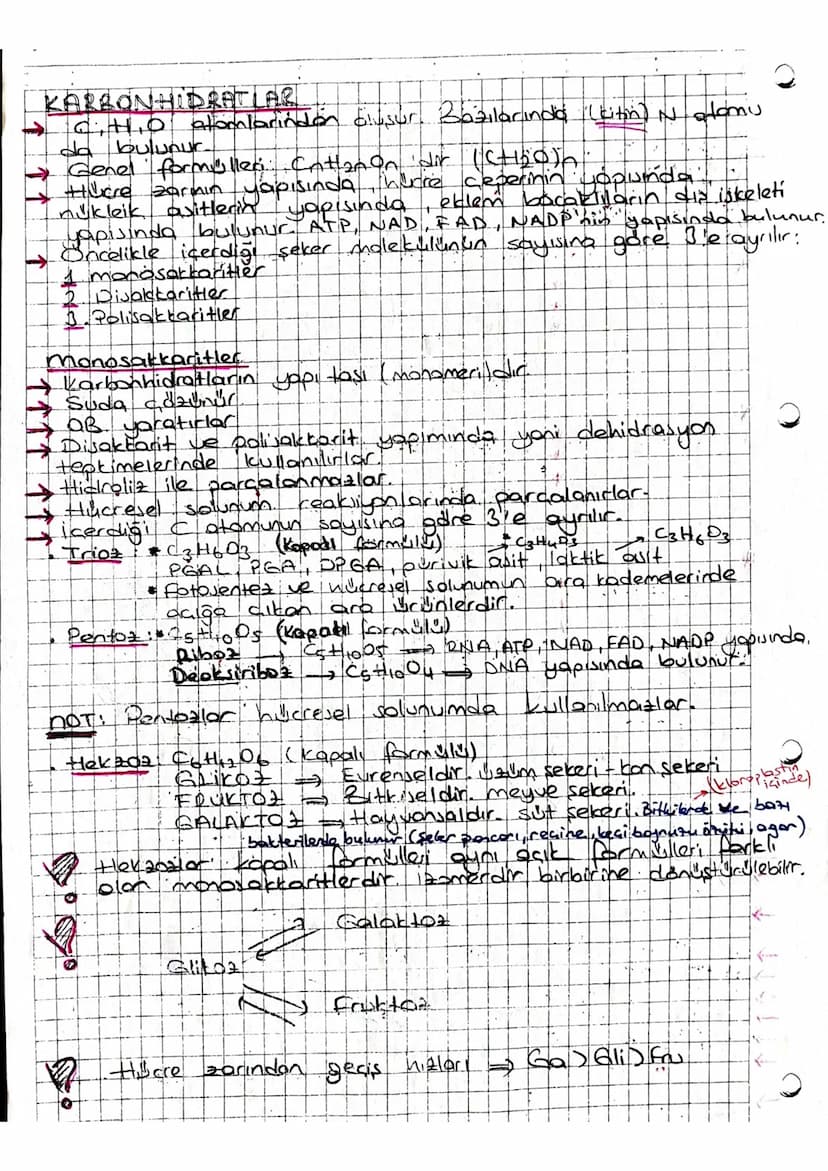 KARBONHİDRATLAR
→ C, H, O atomlarından oluşur. Bazılarında (kitin) N atomu
da bulunur.
→ Genel formülleri CnH2nOn 'dir (CH2O)n
→ Hücre zarının yapısında, hücre çeperinin yapısında,
nükleik asitlerin yapısında, eklem bacaklıların dış iskeleti
yapısında bulunur. ATP, NAD, FAD, NADP'nin yapısında bulunur.
→ Öncelikle içerdiği şeker molekülünün sayısına göre 3'e ayrılır:
1 monosakkaritler
2 Disakkaritler
3. Polisakkaritler
Monosakkaritler
→ Karbonhidratların yapı taşı (monomeri)dir.
→ Suda çözünür
→ OB yaratırlar
→ Disakkarit ve polisakkarit yapımında yani dehidrasyon
tepkimelerinde kullanılırlar.
→ Hidroliz ile parçalanmazlar.
→ Hücresel solunum reaksiyonlarında parçalanırlar.
→ İçerdiği C atomunun sayısına göre 3'e ayrılır.
. Trioz : * C3H6O3 (Kapalı formülü) * C3H4O3 → C3H6O3
PGAL, PGA, DPGA, pürivik asit, laktik asit
* Fotosentez ve hücresel solunumun bira kademelerinde
açığa çıkan ara ürünlerdir.
. Pentoz : * C5H10O5 (Kapalı formülü)
Riboz → C5H10O5 → RNA, ATP, NAD, FAD, NADP yapısında.
Deoksiriboz → C5H10O4 → DNA yapısında bulunur.
NOT: Pentozlar hücresel solunumda kullanılmazlar.
. Hekzoz: C6H12O6 (kapalı formülü)
GLİKOZ ⇒ Evrenseldir. Üzüm şekeri - kan şekeri
FRUKTOZ ⇒ Bitkiseldir. meyve şekeri. (kloroplastın içinde)
GALAKTOZ ⇒ Hayvansaldır. süt şekeri. Bitkilerde ve bazı
bakterilerde bulunur (şeker pancarı, reçine, keçi boynuzu, agar)
Hekzozlar kapalı formülleri aynı açık formülleri farklı
olan monosakkaritlerdir. izomerdir birbirine dönüştürülebilir.
Galaktoz
Glikoz
Fruktoz
Hücre zarından geçiş hızları ⇒ Ga > Gli > Fru